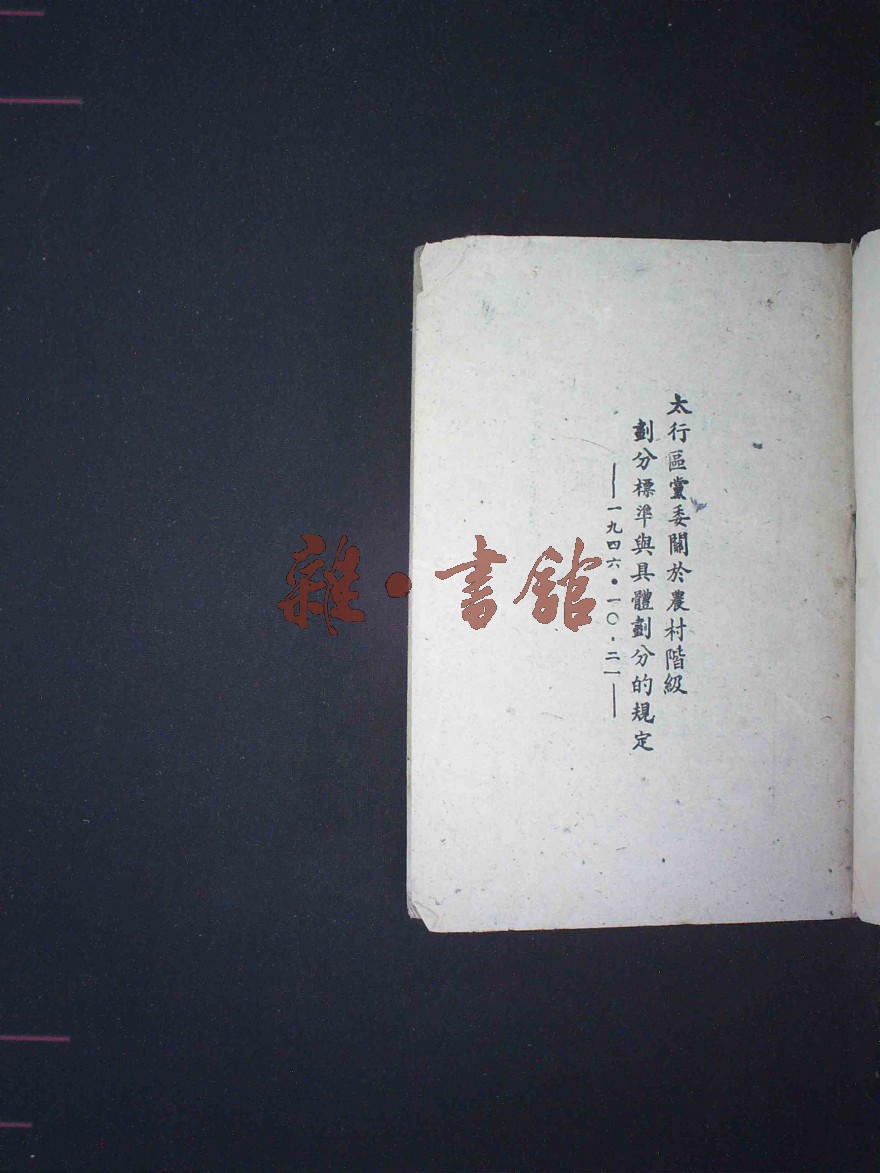 太行區黨委關於農村階級
劃分標準與具體劃分的規定
——一九四六·一〇·二一——
雜·書館